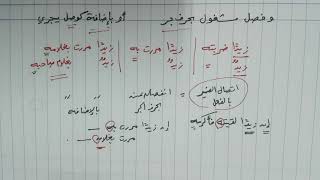 وفصل مشغول بحرف جر أو بإضافة كوصل يجري
زيدًا ضربته زيدًا مررت به زيدًا مررت بغلامه
زيدٌ زيدٌ زيدٌ
اتصال الضمير بالفعل = انفصاله عن حرف الجر
بالإضافة
إن زيدًا لقيته فأكرمه إن زيدًا مررت به
مررت بغلامه